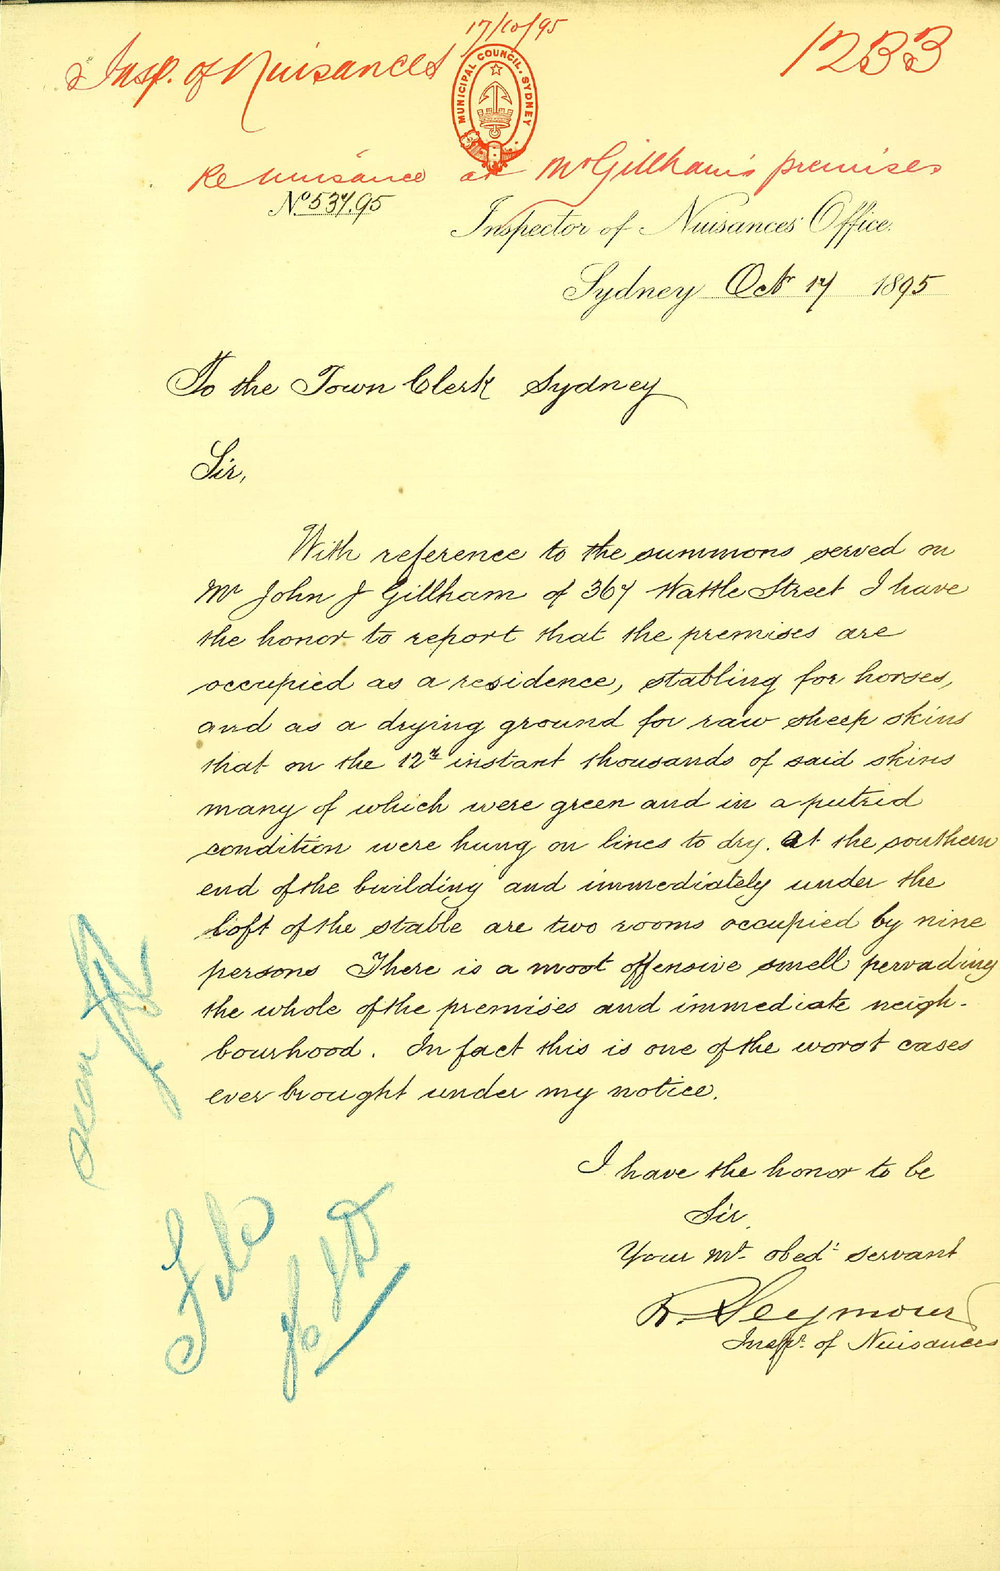 17/10/95
Insp. of Nuisances
1233
MUNICIPAL COUNCIL. SYDNEY
Re nuisance at Mr Gillham's premises
No. 537.95
Inspector of Nuisances' Office.
Sydney Octr 17 1895
To the Town Clerk Sydney
Sir,
With reference to the summons served on
Mr John J Gillham of 367 Wattle Street I have
the honor to report that the premises are
occupied as a residence, stabling for horses,
and as a drying ground for raw sheep skins
that on the 12th instant thousands of said skins
many of which were green and in a putrid
condition were hung on lines to dry. At the southern
end of the building and immediately under the
loft of the stable are two rooms occupied by nine
persons There is a most offensive smell pervading
the whole of the premises and immediate neigh-
bourhood. In fact this is one of the worst cases
ever brought under my notice.
I have the honor to be
Sir,
Your Mt. obedt. servant
R. Seymour
Inspr. of Nuisances
seen
File